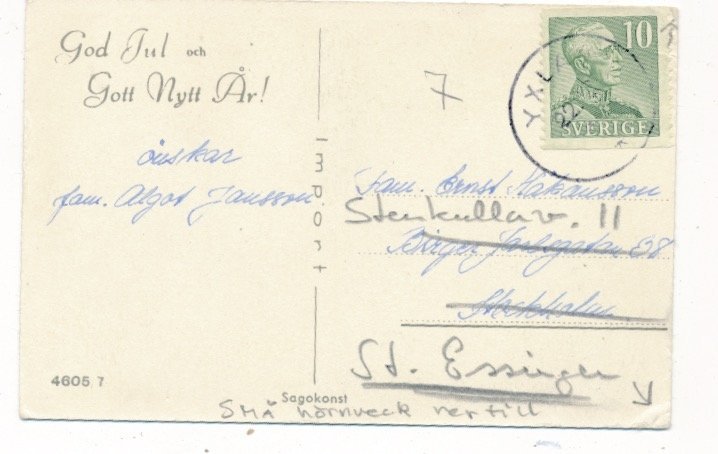 God Jul och
Gott Nytt År!
önskar
fam. Algot Jansson
Import
4605 7
Sagokonst
7
10
SVERIGE
YXL
22
Fam. Ernst Hakansson
Stenkullav. 11
Birger Jarlsgatan
Stockholm
St. Essingen
små hörnveck nertill